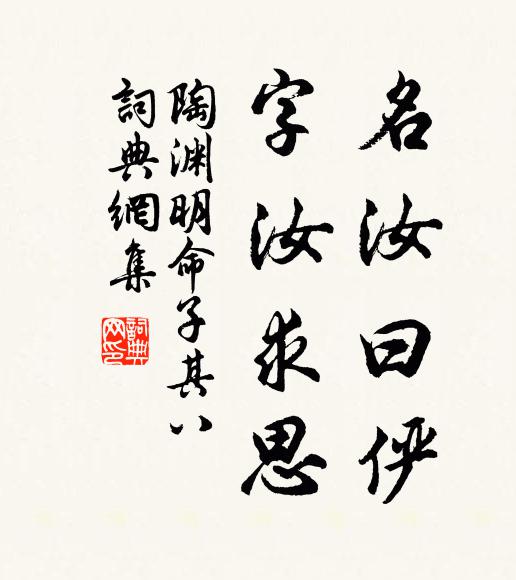 名汝曰俨
字汝求思
陶渊明命子其八
詞典網集
詞典网印